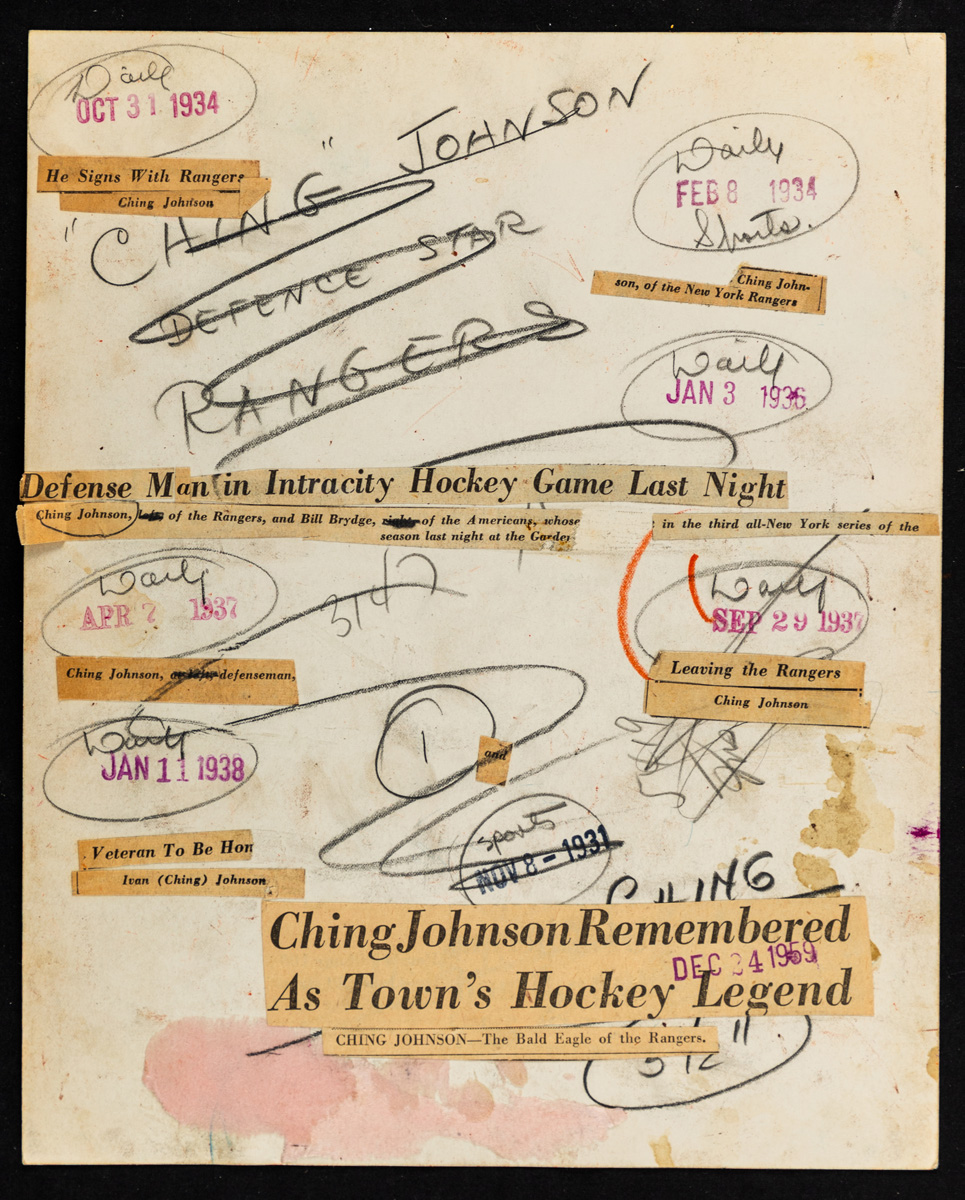 Daily
OCT 31 1934
He Signs With Rangers
Ching Johnson
"CHING" JOHNSON
DEFENCE STAR
RANGERS
Daily
FEB 8 1934
Sports.
Ching John-
son, of the New York Rangers
Daily
JAN 3 1936
Defense Man in Intracity Hockey Game Last Night
Ching Johnson, left, of the Rangers, and Bill Brydge, right, of the Americans, whose
in the third all-New York series of the
season last night at the Garden
Daily
APR 7 1937
Ching Johnson, defenseman,
Daily
SEP 29 1937
Leaving the Rangers
Ching Johnson
Daily
JAN 11 1938
1
and
Veteran To Be Hon
Ivan (Ching) Johnson
Sports
NOV 8 - 1931
CHING
Ching Johnson Remembered
As Town's Hockey Legend
DEC 24 1959
CHING JOHNSON—The Bald Eagle of the Rangers.